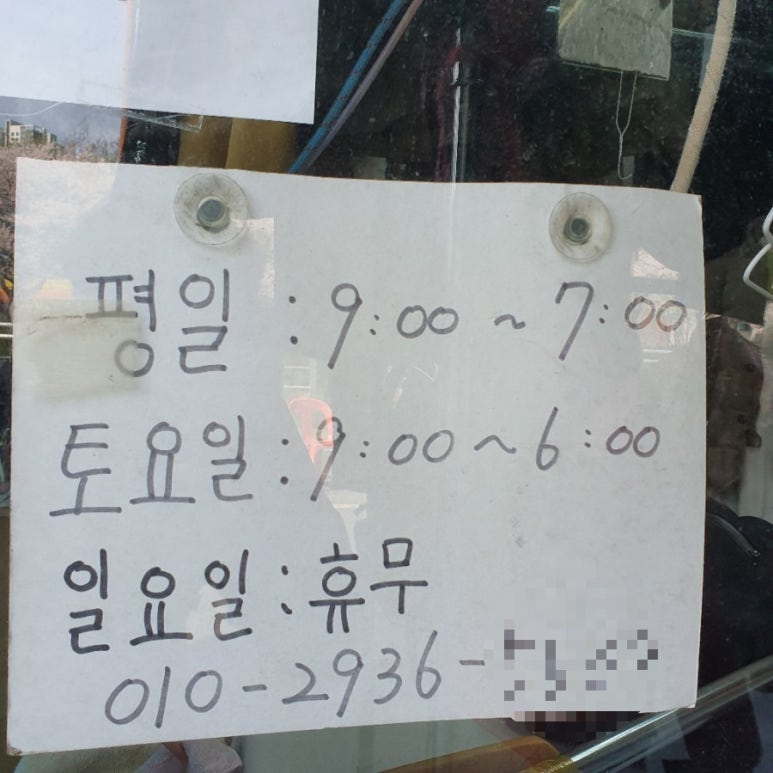 평일 : 9:00 ~ 7:00
토요일 : 9:00 ~ 6:00
일요일 : 휴무
010-2936-